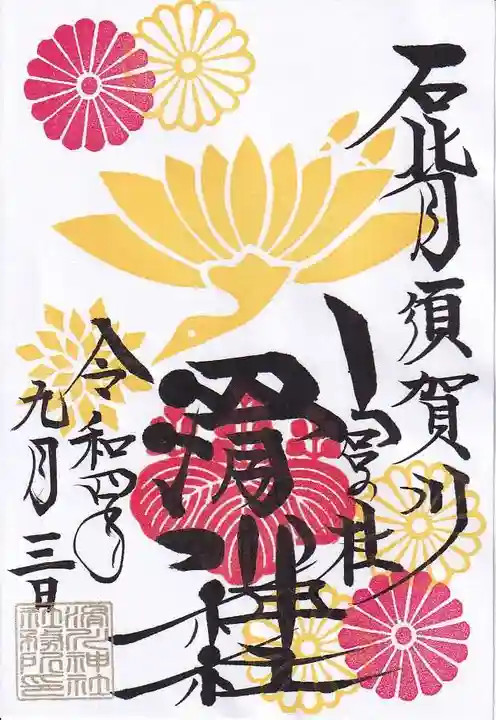 石背須賀川
宮の杜
滑川神社
令和四年
九月三日
滑川神社
社務所印